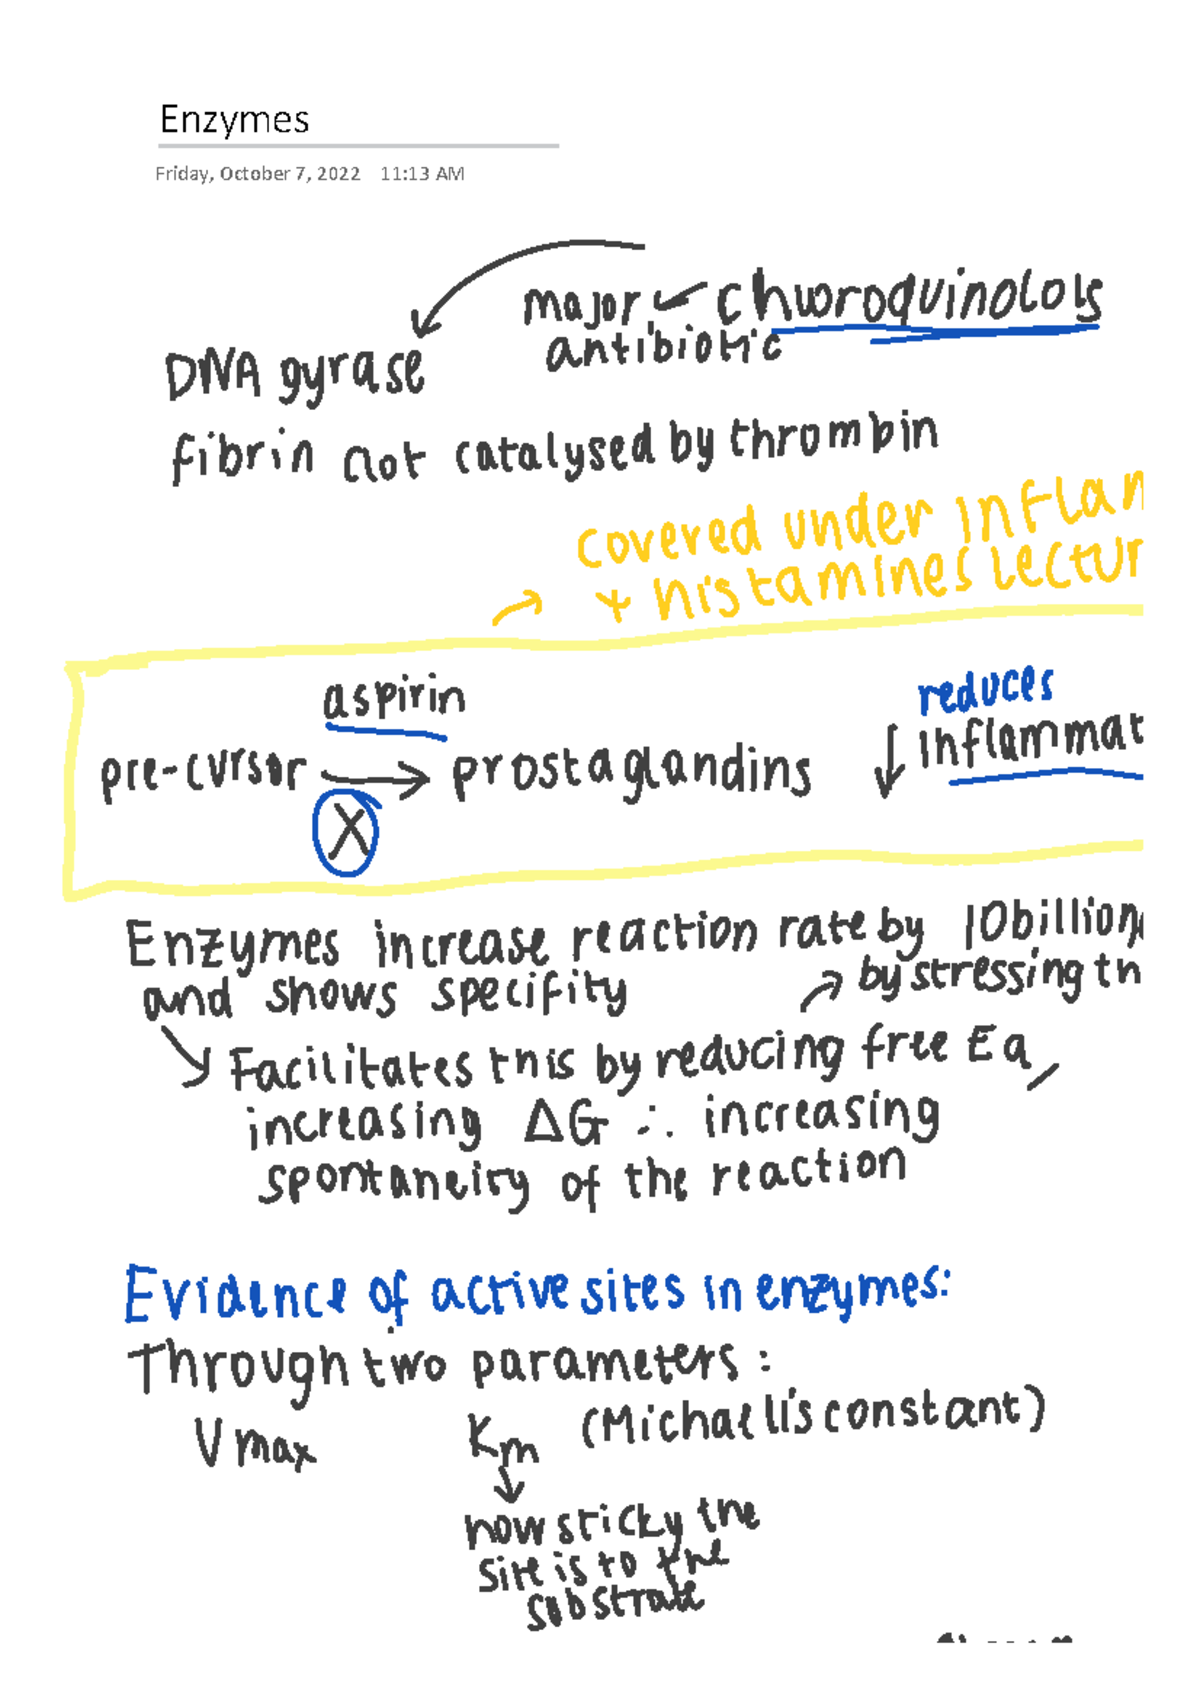 Enzymes
Friday, October 7, 2022 11:13 AM
major chworoquinolols
antibiotic
DNA gyrase
fibrin not catalysed by thrombin
covered under inflam
+ histamines lectur
aspirin
reduces
pre-cursor → prostaglandins ↓ inflammat
X
Enzymes increase reaction rate by 10billion
and shows specifity by stressing th
Facilitates this by reducing free Ea,
increasing ΔG ∴ increasing
spontaneity of the reaction
Evidence of active sites in enzymes:
Through two parameters:
Vmax Km (Michaelli's constant)
how sticky the
site is to the
substrate